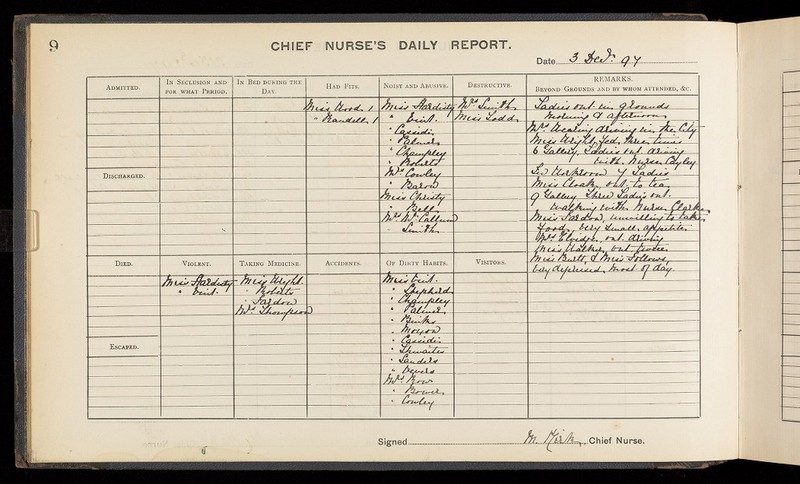 9
CHIEF NURSE'S DAILY REPORT.
Date 3 Decr. 97
ADMITTED.
IN SECLUSION AND FOR WHAT PERIOD.
IN BED DURING THE DAY.
HAD FITS.
Miss Wood 1
" Randell 1
NOISY AND ABUSIVE.
Miss Hardisty
" Vint.
" Cassidi
" Palmer
" Champley
" Roberts
Mrs Cowley
" Baron
Miss Christy
" Bell
Mrs McCallum
" Smith
DESTRUCTIVE.
Mrs Smith
Miss Dodd
REMARKS.
BEYOND GROUNDS AND BY WHOM ATTENDED, &C.
Ladies out in grounds
morning & afternoon
Mrs driving in the City
Miss Wright fed three times
6 Gallery Ladies out driving
with Nurse Cayley
In Workroom 7 Ladies
Miss Cloak out to tea
9 Gallery Three Ladies out
walking with Nurse Clarke
Miss unwilling to take
food, very small appetite
Mrs out driving
Miss Walker out
Miss Burtt & Miss Follows
very depressed most of day.
DISCHARGED.
DIED.
VIOLENT.
Miss Hardisty
" Vint.
TAKING MEDICINE.
Miss Wright.
" Roberts
Mrs Thompson
ACCIDENTS.
OF DIRTY HABITS.
Miss Vint.
" Shepherd
" Champley
" Palmer
" Binks
" Moxon
" Cassidi
" Thwaites
" Sanders
Mrs Row
" Bower
" Cowley
VISITORS.
ESCAPED.
Signed M. Kirk, Chief Nurse.